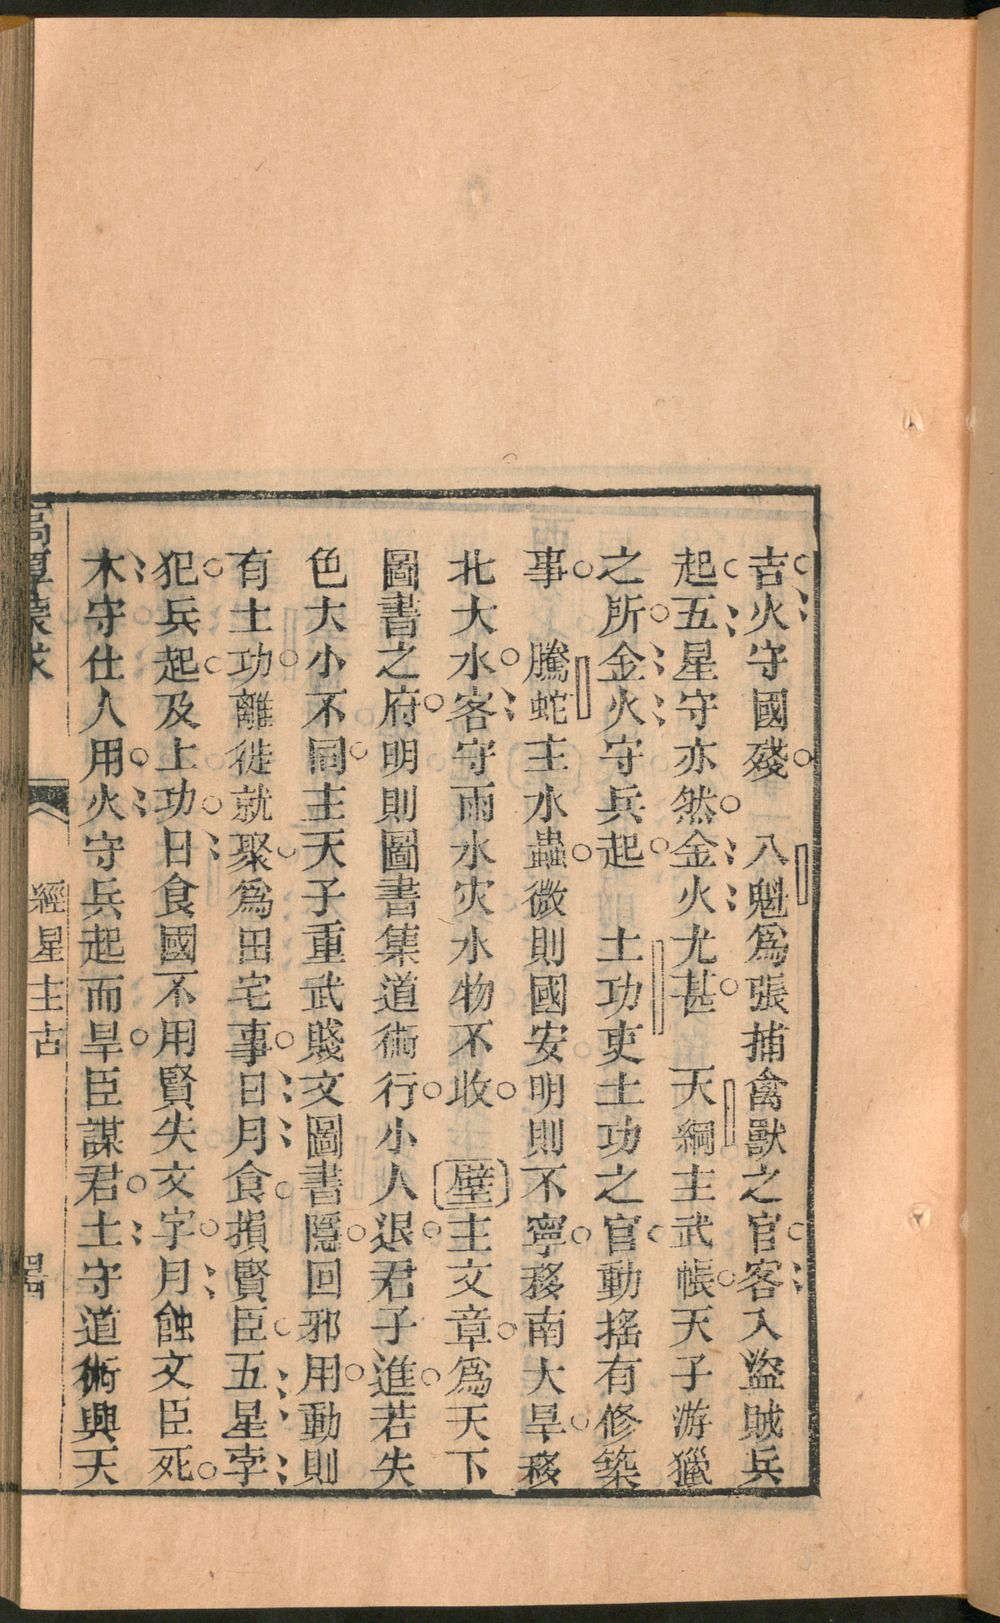 吉火守國殘　八魁爲張捕禽獸之官客入盜賊兵
起五星守亦然金火尤甚　天綱主武帳天子游獵
之所金火守兵起　土功吏土功之官動搖有修築
事　騰蛇主水蟲微則國安明則不寧移南大旱移
北大水客守雨水灾水物不收　壁主文章爲天下
圖書之府明則圖書集道術行小人退君子進若失
色大小不同主天子重武賤文圖書隱回邪用動則
有土功離徙就聚爲田宅事日月食損賢臣五星孛
犯兵起及土功日食國不用賢失文字月蝕文臣死
木守仕人用火守兵起而旱臣謀君土守道術興天
經星主占